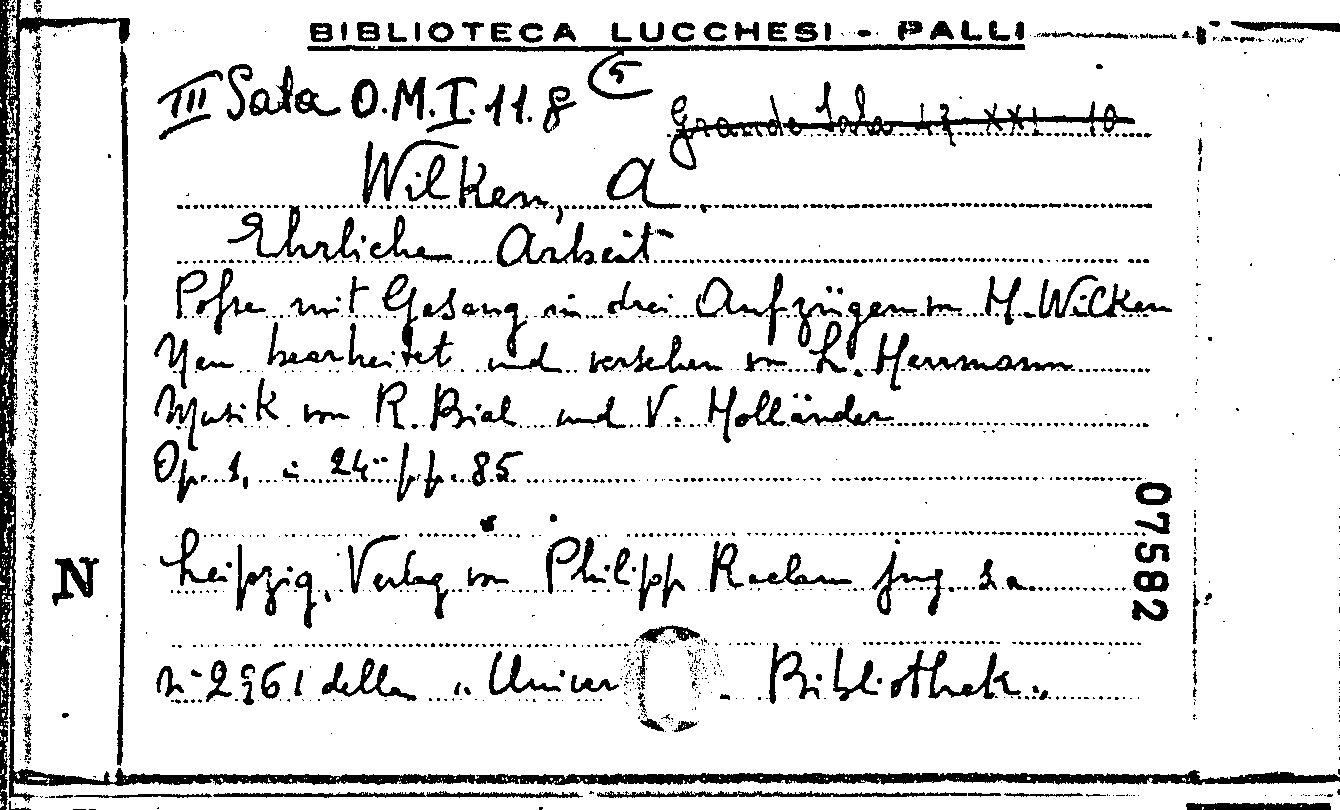 BIBLIOTECA LUCCHESI - PALLI
III Sala O.M.I.11.8 (5
Grande Sala 47-XXI-10
Wilken, A.
Ehrlichen Arbeit
Posse mit Gesang in drei Aufzügen von H. Wilken
Neu bearbeitet und versehen von L. Herrmann
Musik von R. Bial und V. Holländer
Op. 1, in 24° pp. 85
Leipzig, Verlag von Philipp Reclam jug. s.a.
N
n° 2961 della "Univer . Bibliothek"
07582